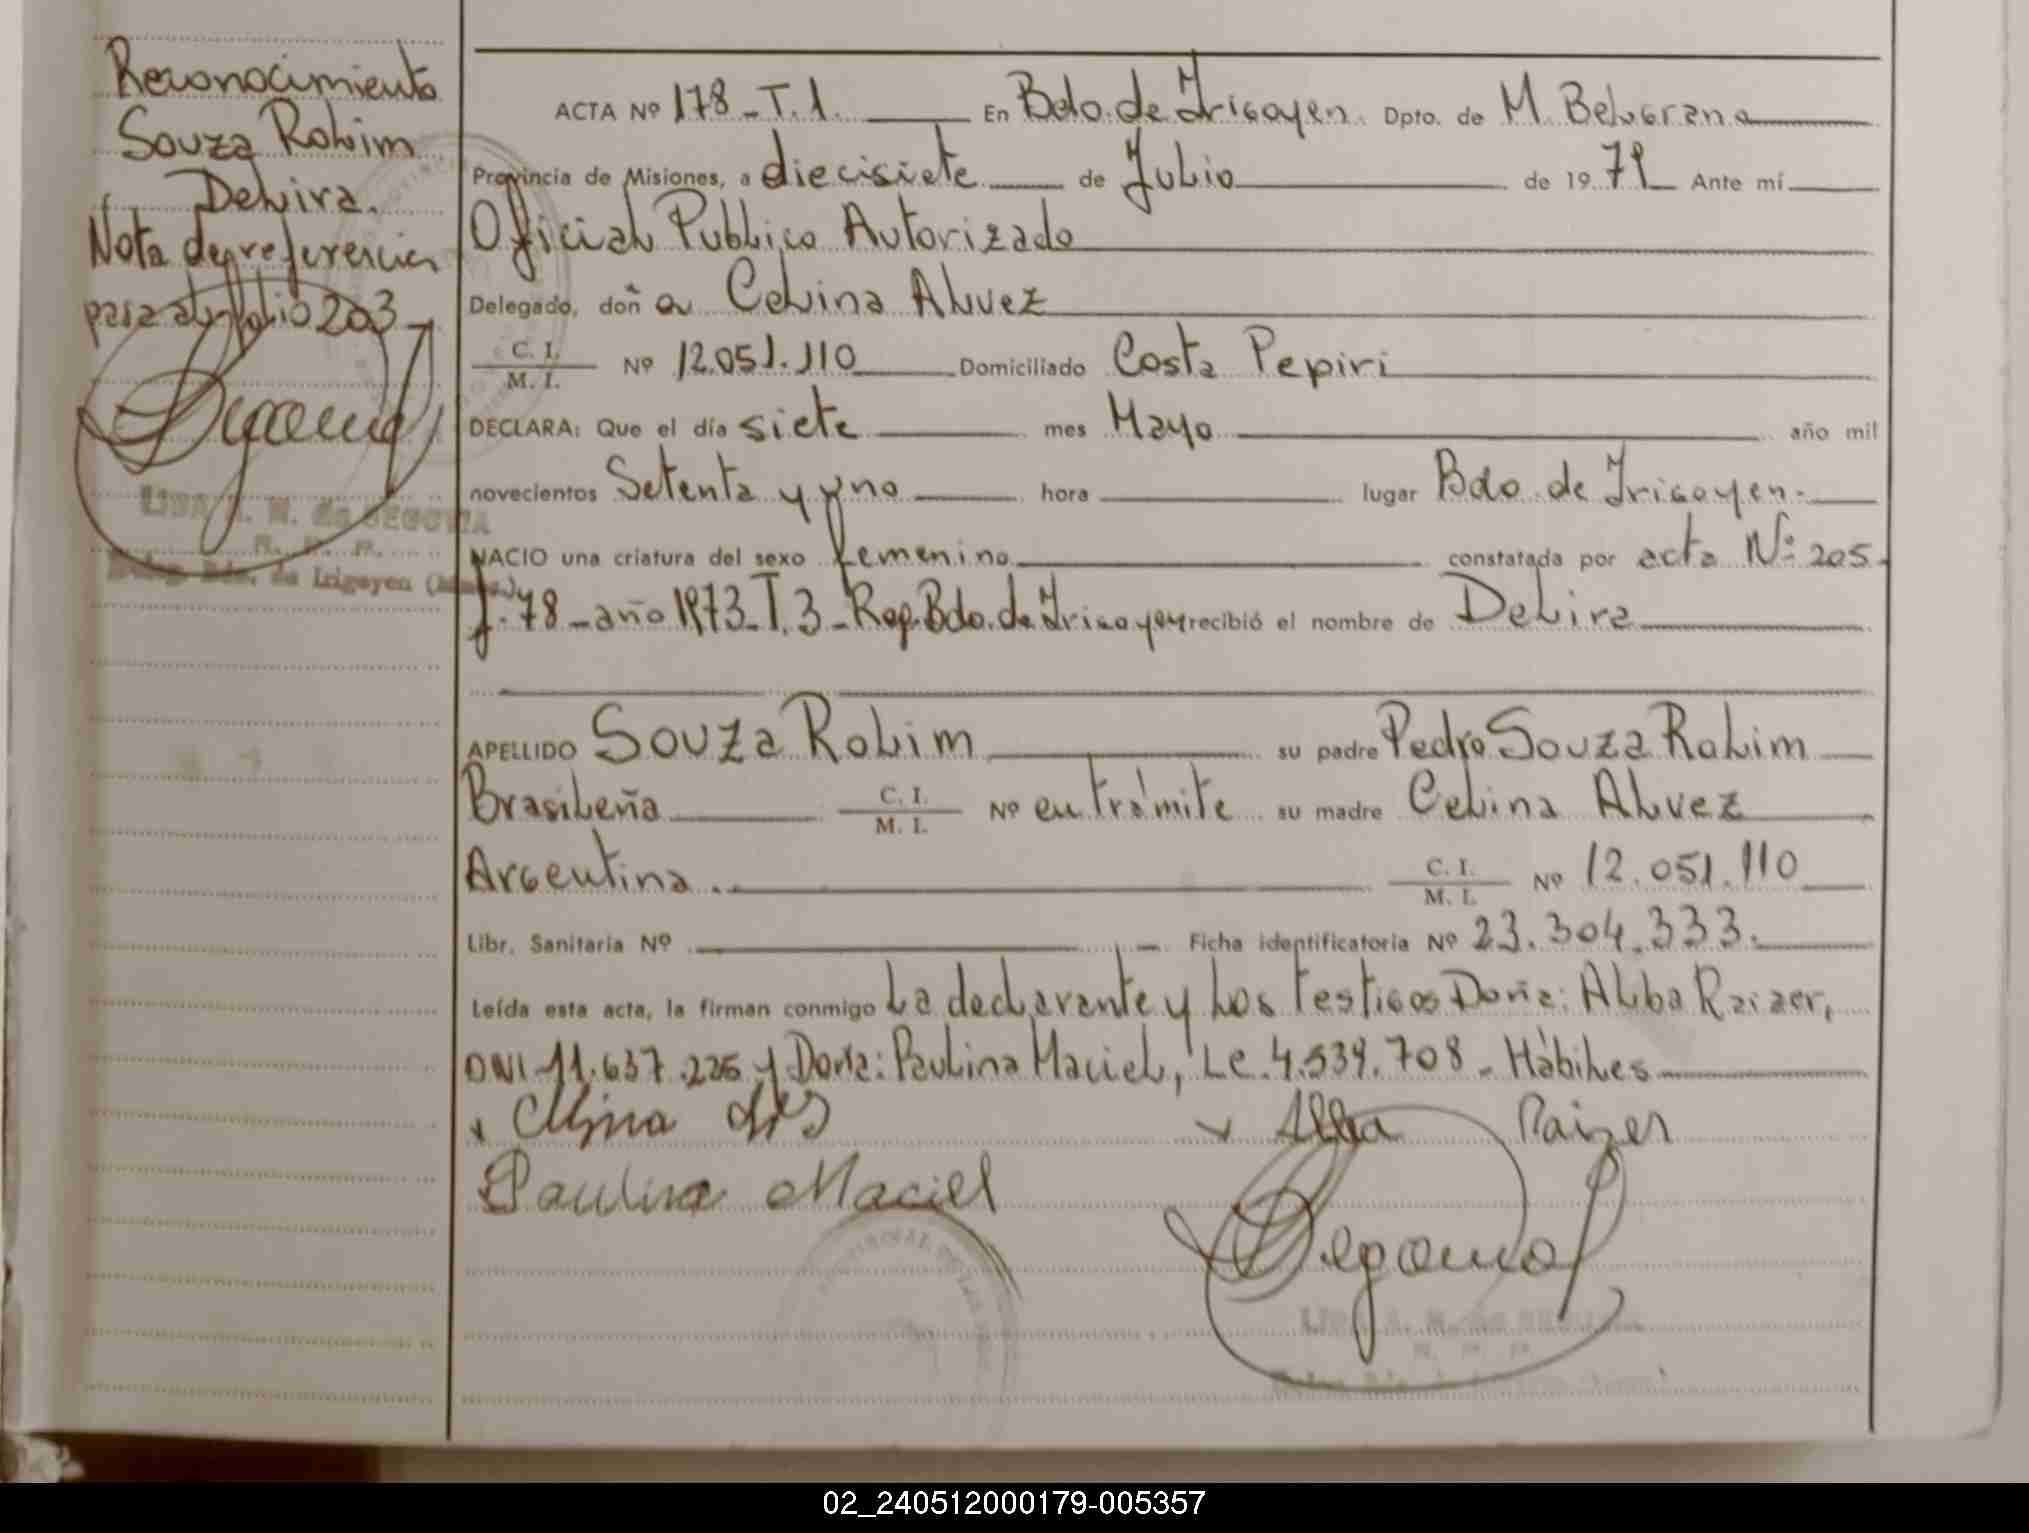 Reconocimiento
Souza Rolim
Delvira.
Nota de referencia
para el folio 203
LIDA A. N. de SEGOVIA
Bdo. de Irigoyen
ACTA Nº 178 - T. 1. En Bdo. de Irigoyen. Dpto. de M. Belgrano
Provincia de Misiones, a diecisiete de Julio de 19 79 Ante mí
Oficial Publico Autorizado
Delegado, doñ a Celina Alvez
C. I. / M. I. Nº 12.051.110 Domiciliado Costa Pepiri
DECLARA: Que el día siete mes Mayo año mil
novecientos Setenta y uno hora lugar Bdo. de Irigoyen.
NACIO una criatura del sexo femenino constatada por acta Nº 205.
f. 78 - año 1973 - T. 3 - Rep. Bdo. de Irigoyen recibió el nombre de Delvira
APELLIDO Souza Rolim su padre Pedro Souza Rolim
Brasileña C. I. / M. I. Nº en trámite su madre Celina Alvez
Argentina. C. I. / M. I. Nº 12.051.110
Libr. Sanitaria Nº Ficha identificatoria Nº 23.304.333.
Leída esta acta, la firman conmigo La declarante y los Testigos Doña: Alba Raizer,
DNI 11.637.226 y Doña: Paulina Maciel, Lc. 4.539.708 - Hábiles
Alba Raizer
Paulina Maciel
LIDA A. N. de SEGOVIA
02_240512000179-005357